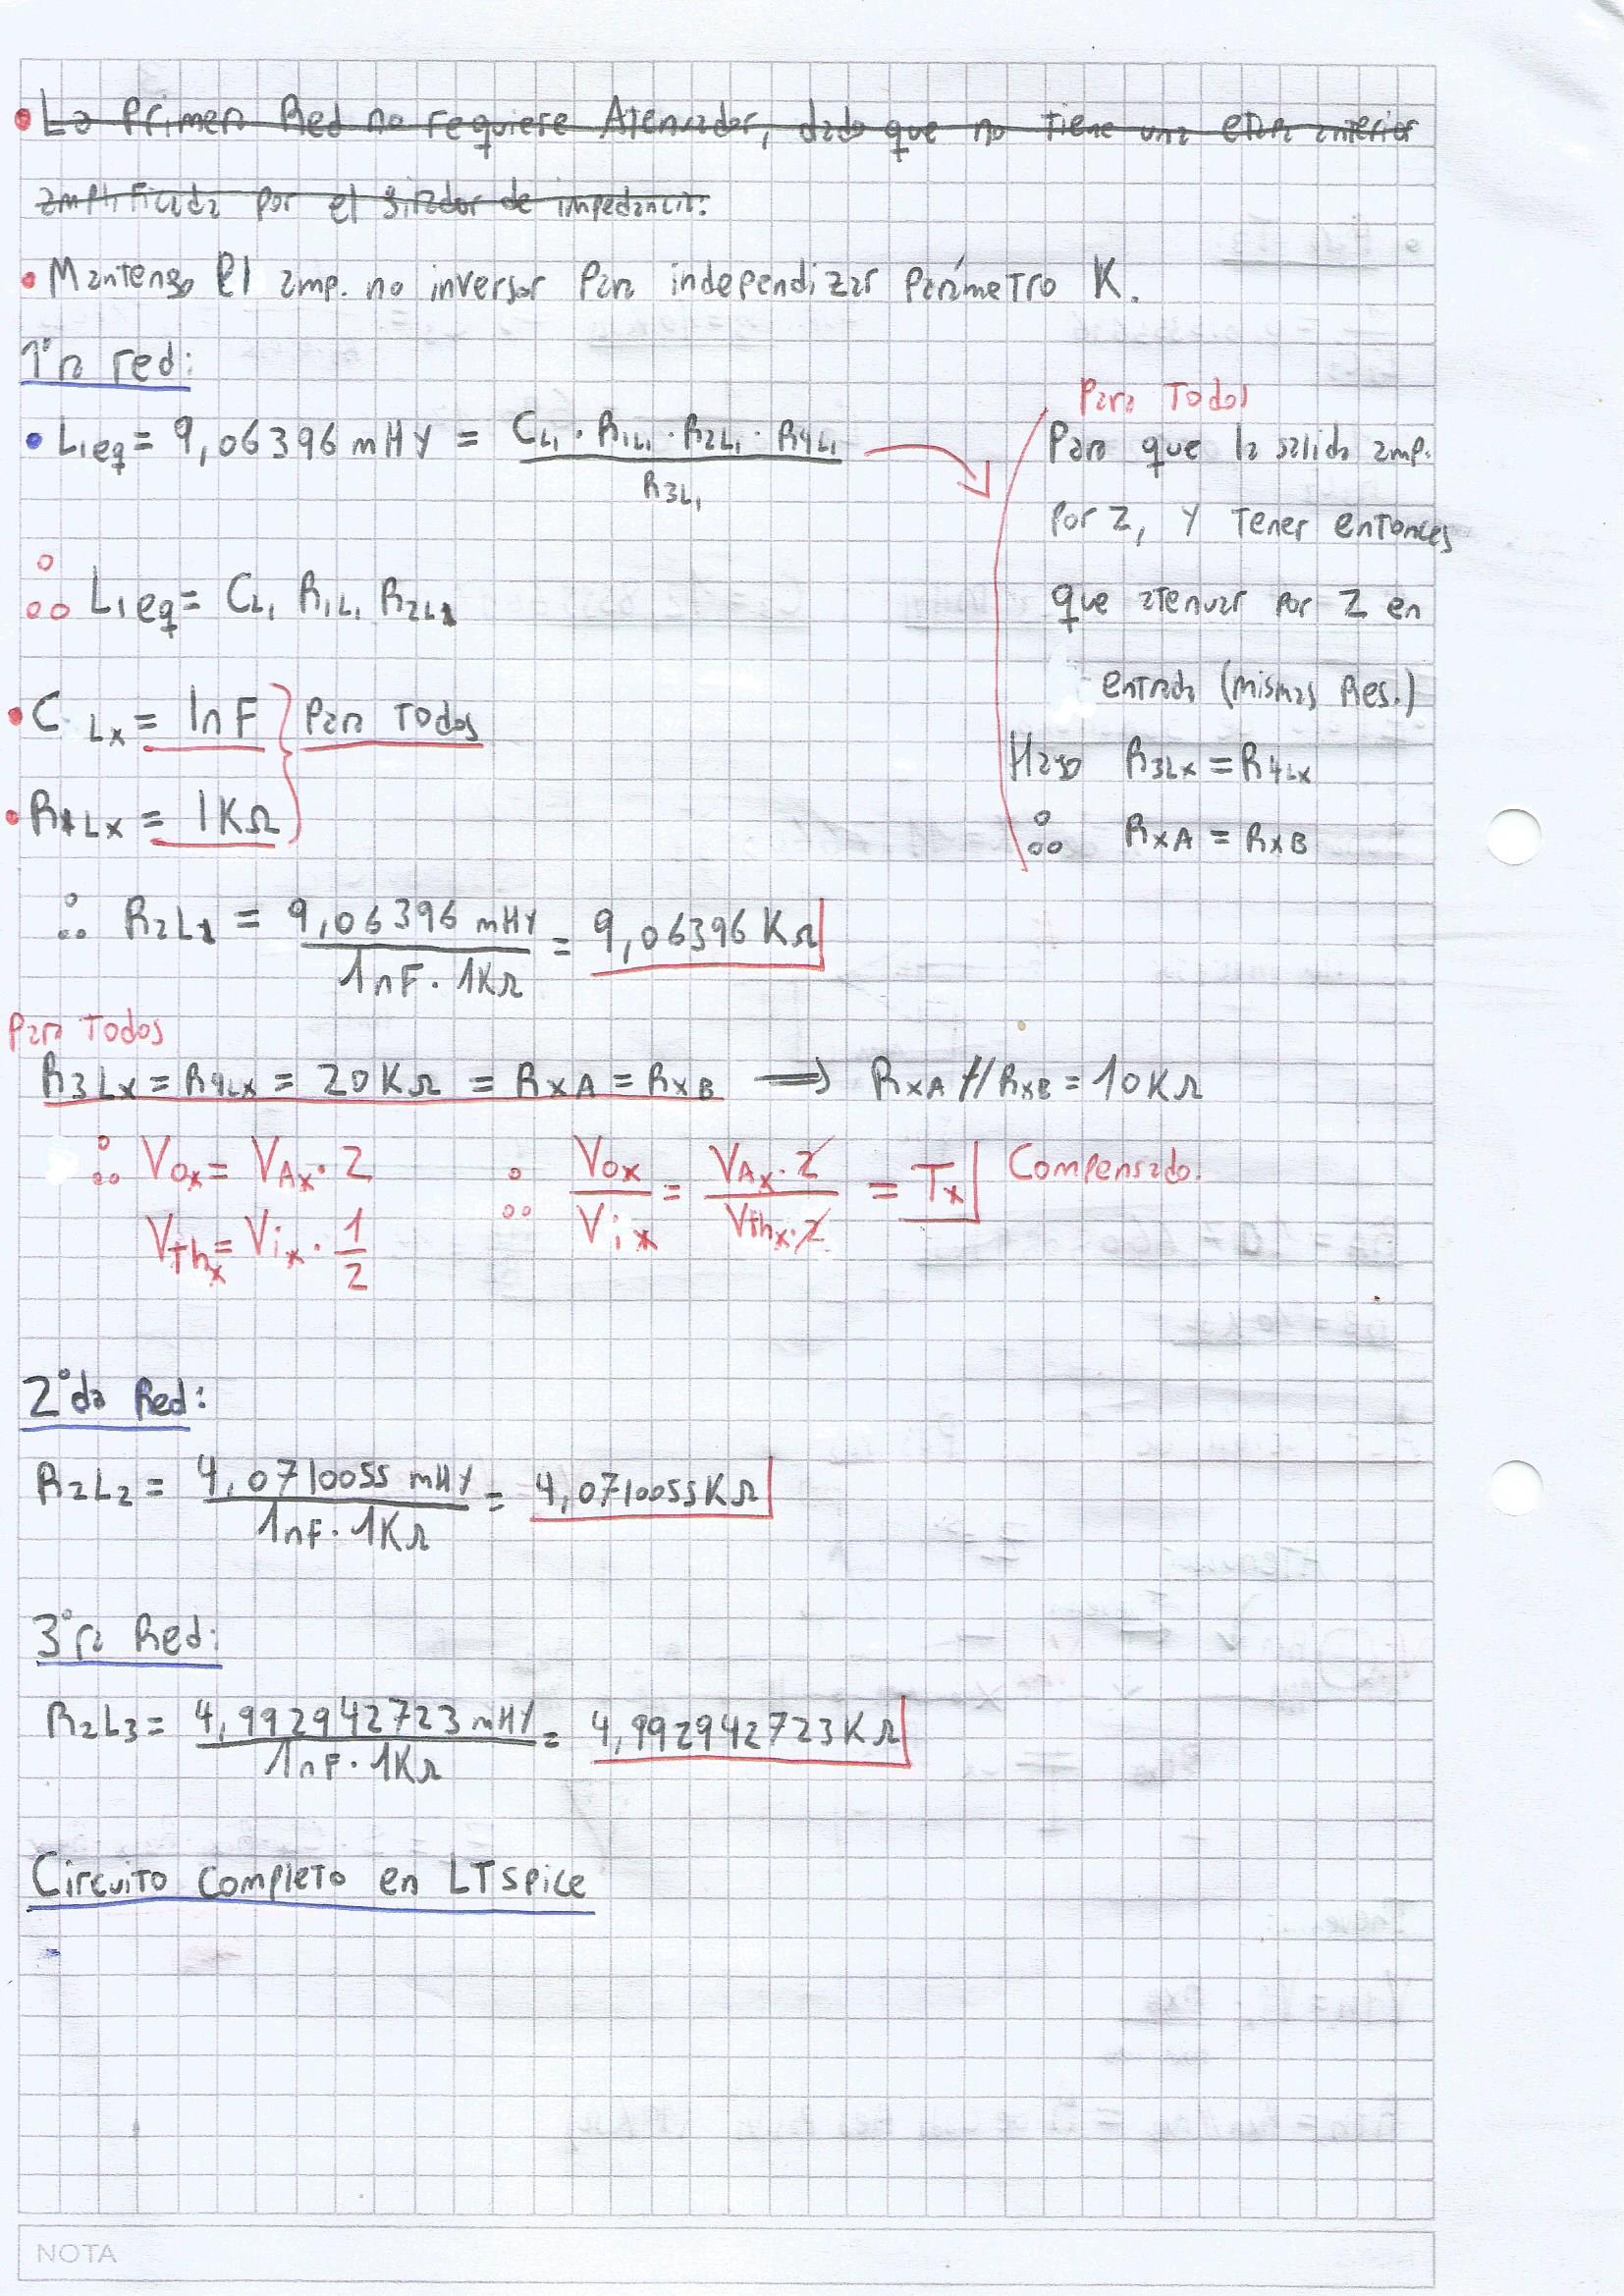 • La Primera Red no requiere Atenuador, dado que no tiene una etapa anterior
amplificada por el girador de impedancia.
• Mantengo el amp. no inversor para independizar parámetro K.
1°ra red:
• L1eq = 9,06396 mHy = (CL1 · R1L1 · R2L1 · R4L1) / R3L1
Para Todos
Para que la salida amp.
por 2, y tener entonces
que atenuar por 2 en
entrada (mismas Res.)
Hago R3Lx = R4Lx
∴ RxA = RxB
∴ L1eq = CL1 R1L1 R2L1
• C Lx = 1nF } Para Todos
• R1Lx = 1KΩ
∴ R2L1 = 9,06396 mHy / (1nF · 1KΩ) = 9,06396 KΩ
Para Todos
R3Lx = R4Lx = 20KΩ = RxA = RxB ⟹ RxA // RxB = 10KΩ
∴ Vox = VAx · 2 ∴ Vox / Vix = (VAx · 2) / (Vthx · 2) = Tx Compensado.
VThx = Vix · 1/2
2°da Red:
R2L2 = 4,0710055 mHy / (1nF · 1KΩ) = 4,0710055KΩ
3°ra Red:
R2L3 = 4,992942723 mHy / (1nF · 1KΩ) = 4,992942723KΩ
Circuito completo en LTspice
NOTA